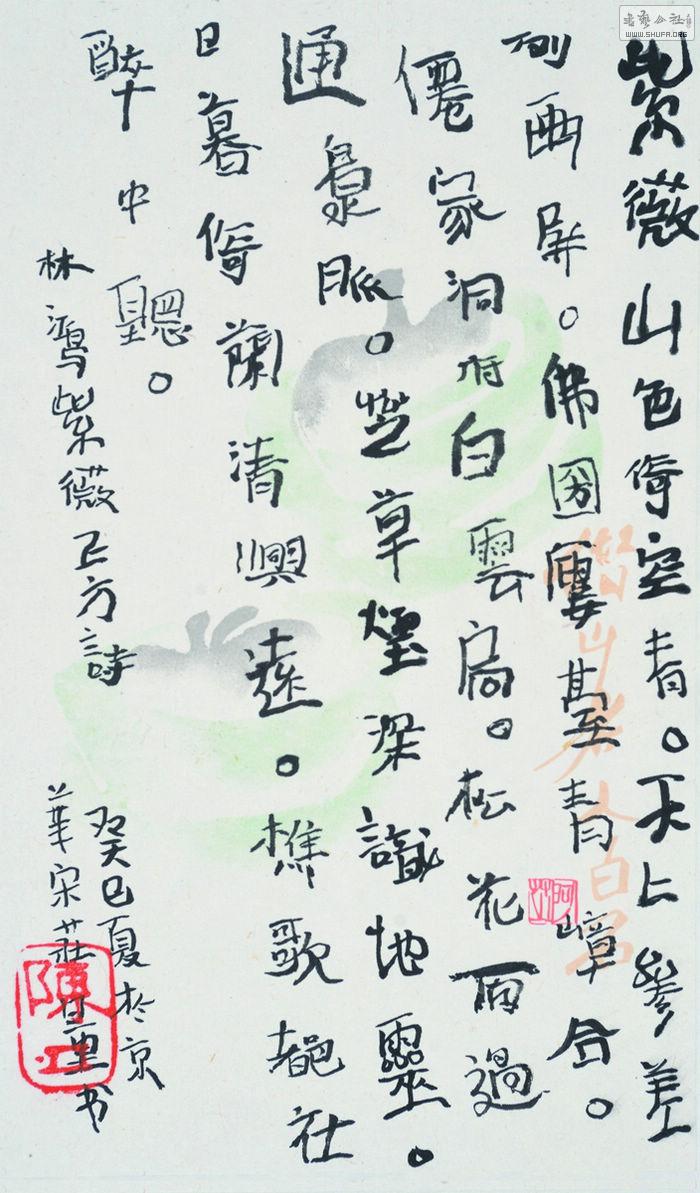 紫薇山色倚空青。天上參差
列画屏。佛國樓臺青嶂合。
僊家洞府白雲扃。松花雨過
通泉脈。芝草煙深識地靈。
日暮倚蘭清興遠。樵歌都社
醉中聽。
林鴻紫薇正方詩
癸巳夏於京
華宋莊里书
WWW.SHUFA.ORG